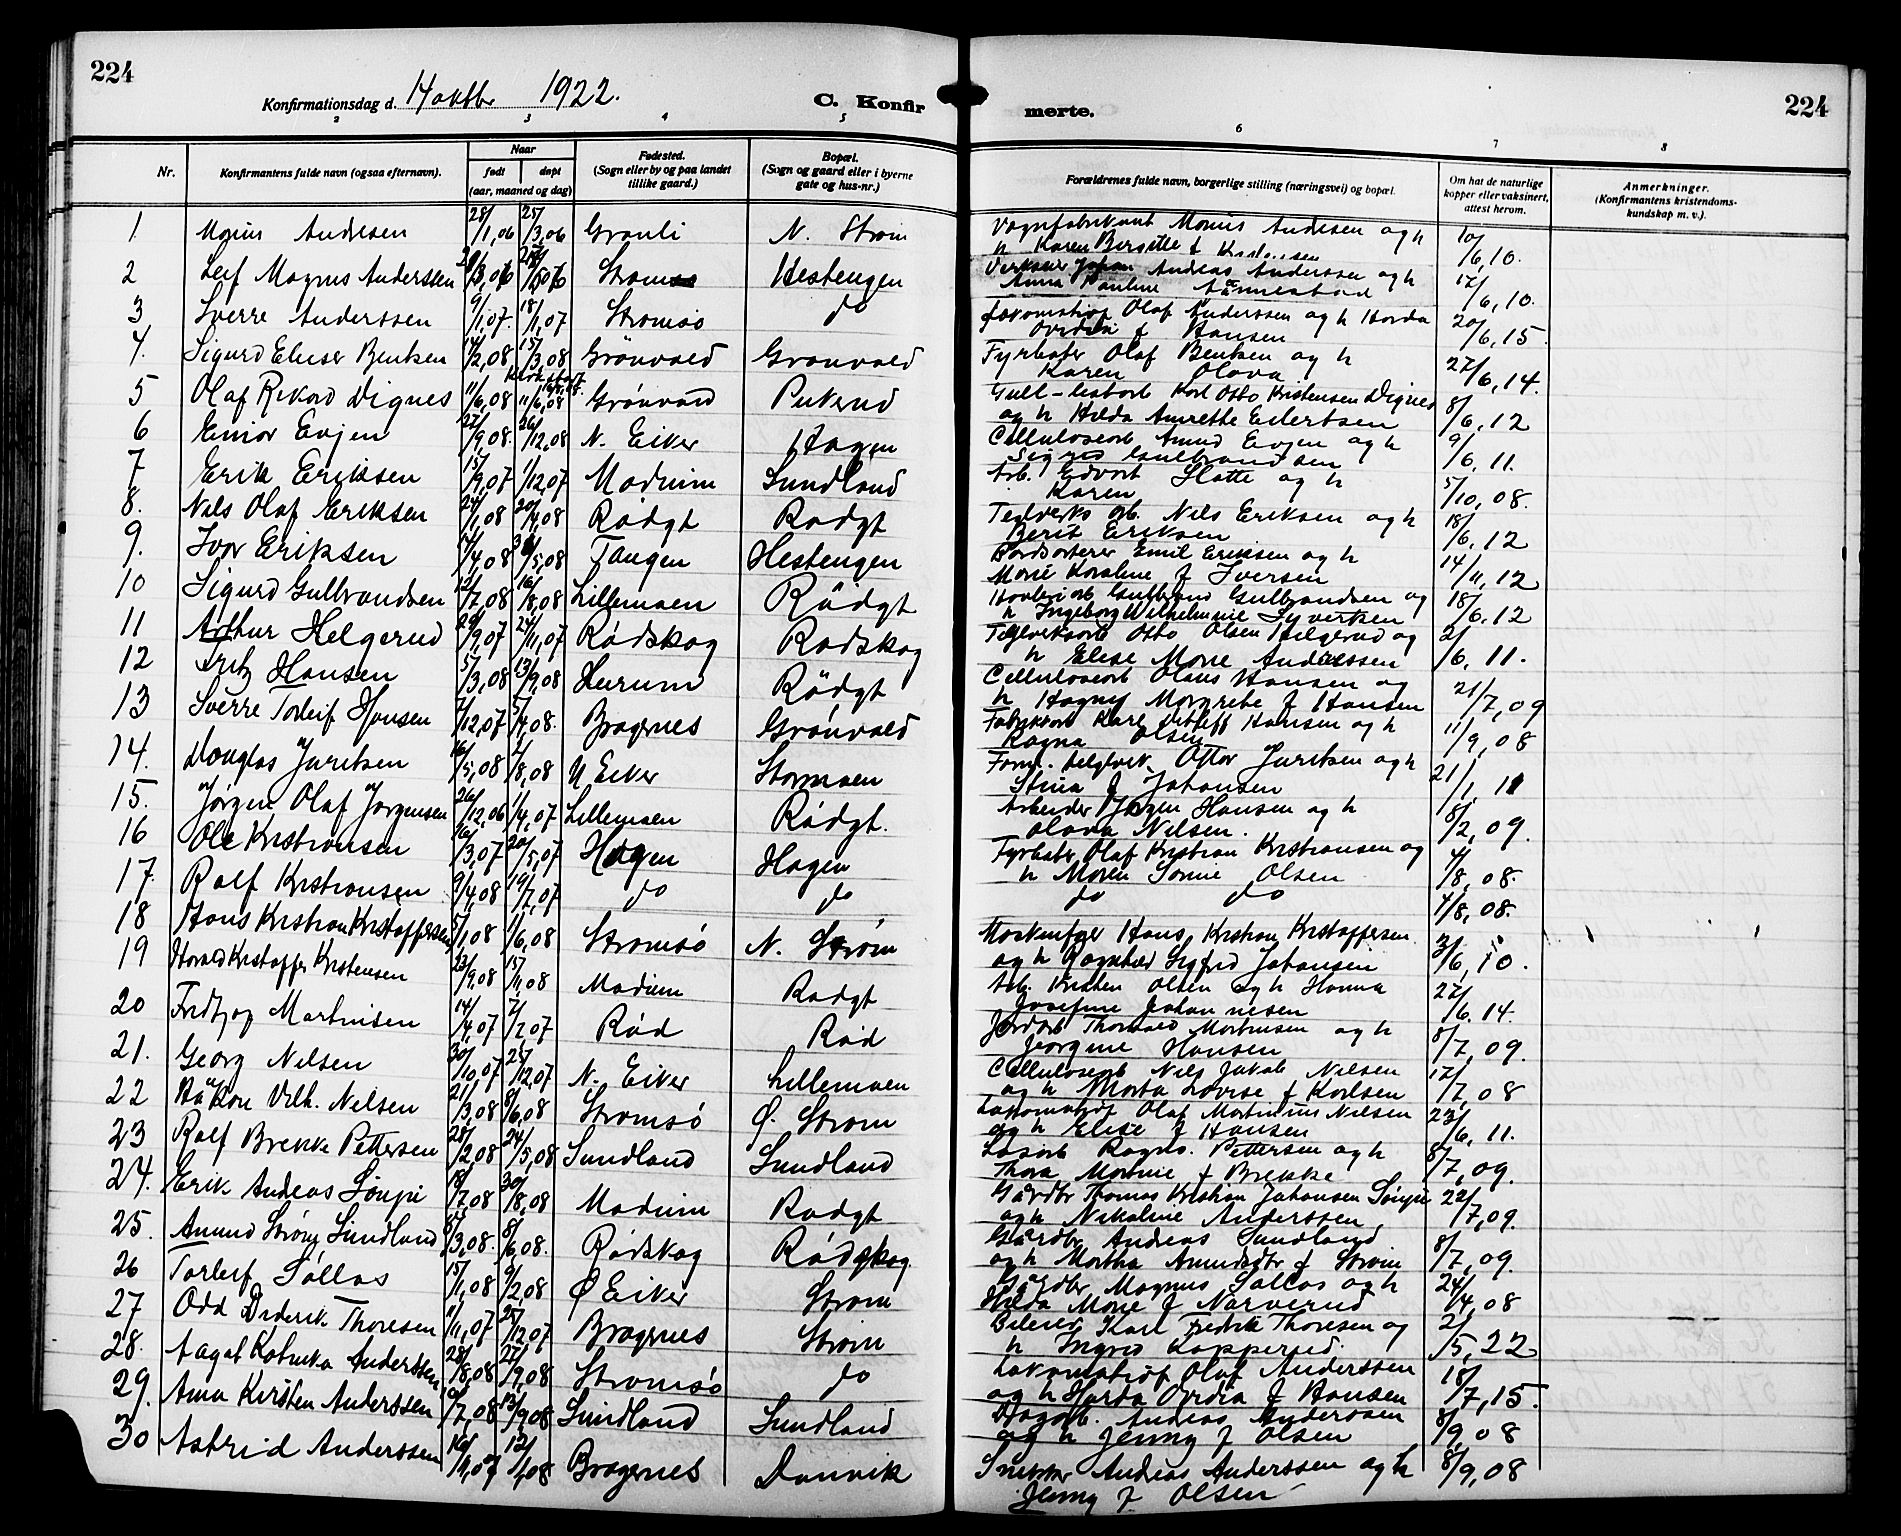 224
Konfirmationsdag d. 14 oktbr 1922.
C. Konfir
merte.
224
2 3 4 5 6 7 8
Nr.
Konfirmantens fulde navn (ogsaa efternavn).
Naar
født døpt
(aar, maaned og dag)
Fødested.
(Sogn eller by og paa landet
tillike gaard.)
Bopæl.
(Sogn og gaard eller i byerne
gate og hus-nr.)
Forældrenes fulde navn, borgerlige stilling (næringsvei) og bopæl.
Om hat de naturlige
kopper eller vaksinert,
attest herom.
Anmerkninger.
(Konfirmantens kristendoms-
kundskap m. v.).
1 Andersen 28/1,06 25/3,06 N. Strøm Vognfabrikant Andersen og h 10/6,10.
h Karen Birgitte f
2 Leif Magnus Anderssen Strømsø Hestengen Andreas Anderssen og h 17/6,10.
Anna Pauline
3 Sverre Anderssen 9/1,07. 18/1,07 Strømsø do Olaf Anderssen og h Horda 20/6,15.
f Hansen
4. Sigurd Elieser Bentsen 14/2,08 15/3,08 Grönvold Grønvold Fyrbøter Olaf Bentsen og h 27/6,14.
Karen Olava
5 Olaf Rikard Dignes 11/6,08 11/6,08 Grönvold Pukerud Karl Otto Kristensen Dignes 8/6,12
og h Hilda Annette Eilertsen
6 Einar Evjen 22/9,08. 26/12,08 N. Eiker Hagen Cellulosearb Amund Evjen og h 9/6,11.
Sigrid Gulbrandsen
7 Erik Eriksen 15/9,07 1/12,07 Modum Sundland Arb. Edvart Slatte og h 5/10,08.
Karen
8. Nils Olaf Eriksen 24/1,08 20/4,08 Rødgt Rødgt Teglverks arb. Nils Eriksen og h 18/6,12
Berit Eriksen
9. Ivar Eriksen 14/4,08 Tangen Hestengen Bordsorterer Emil Eriksen og h 14/11,12
Marie Karoline f Iversen
10 Sigurd Gulbrandsen 12/7,08 16/8,08 Lillemoen Rödgt Høvleriarb Gulbrand Gulbrandsen og 18/6,12
h Ingeborg Wilhelmine Syvertsen
11 Arthur Helgerud 29/9,07 24/11,07 Rødskog Rødskog Teglverksarb Otto Olsen Helgerud og 21/6,11.
h Elise Marie Anderssen
12 Fritz Hansen 5/3,08 13/9,08 Hurum Rödgt Cellulosearb Olaus Hansen og 21/7,09
h Hagny Margrete f Hansen
13 Sverre Torleif Hansen 7/12,07 5/4,08. Bragernes Grönvold Fabrikarb Karl Hansen og h 11/9,08
Ragna Olsen
14. Douglas Juritsen 16/5,08 2/8,08 N Eiker Stormoen Form. teglverk. Ottar Juritsen og h 21/1,11
Stina f Johansen
15. Jörgen Olaf Jørgensen 26/12,06 1/4,07 Lillemoen Rödgt. Arbeider Jørgen Hansen og h 8/2,09.
Olava Nilsen.
16 Ole Kristiansen 16/3,07 20/5,07 Hagen Hagen Fyrbøter Olaf Kristian Kristiansen og 4/8,08.
h Maren Olsen
17. Rolf Kristiansen 9/4,08 19/7,07 do do do do 4/8,08.
18 Hans Kristian Kristoffersen 5/1,08 1/6,08 Strømsö N. Strøm Hans Kristian Kristoffersen 3/6,10.
og h Ragnhild Sigfrid Johansen
19 Harald Kristoffer Kristensen 23/9,08 15/11,08 Modum Rødgt Arb. Kristen Olsen og h Hanna 27/6,14.
Josefine Johannesen
20 Fridtjof Martinsen 14/4,07 7/7,07 Rød Rød Jordarb Thorvald Martinsen og h 8/7,09.
Georgine Hansen
21. Georg Nilsen 30/10,07 25/12,07 N. Eiker Lillemoen Cellulosearb Nils Jakob Nilsen 17/7,08
og h Marta Lovise f Karlsen
22 Håkon Vilh. Nilsen 21/3,08 8/6,08 Strømsö Ø. Strøm Olaf Martinius Nilsen 23/6,11.
og h Elise f Hansen
23 Rolf Brekke Pettersen 28/2,08 24/5,08 Sundland Sundland Løsarb Ragnv. Pettersen og h 8/7,09.
Thora f Brekke
24. Erik Andreas 18/7,08 30/8,08 Modum Rødgt Gårdbr Thomas Kristian Johansen 22/7,09.
og h Nikoline Anderssen
25. Amund Strøm Sundland 6/3,08. 8/6,08. Rødskog Rødskog Gårdbr Andreas Sundland 8/7,09.
og h Martha Amundsdtr f Strøm
26 Torleif Sollos 15/1,08 9/2,08 Ø Eiker Strøm Gårdbr Magnus Sollos og h 24/4,08
Hilda Marie f Narverud
27 Odd Diderik Thoresen 11/11,07 25/12,07 Bragernes Strøm Karl Fredrik Thoresen og 21/5,22
h Ingrid Kopperud.
28. Aagot Katinka Anderssen 28/8,08 27/9,08 Strømsø do Olaf Anderssen 18/7,15.
og h Horda f Hansen
29. Anna Kirsten Anderssen 9/7,08 13/9,08 Sundland Sundland Andreas Anderssen 8/9,08
og h Jenny f Olsen
30 Astrid Anderssen 16/11,07 12/1,08 Bragernes Danvik Snekker Andreas Anderssen og h 8/9,08
Jenny f Olsen